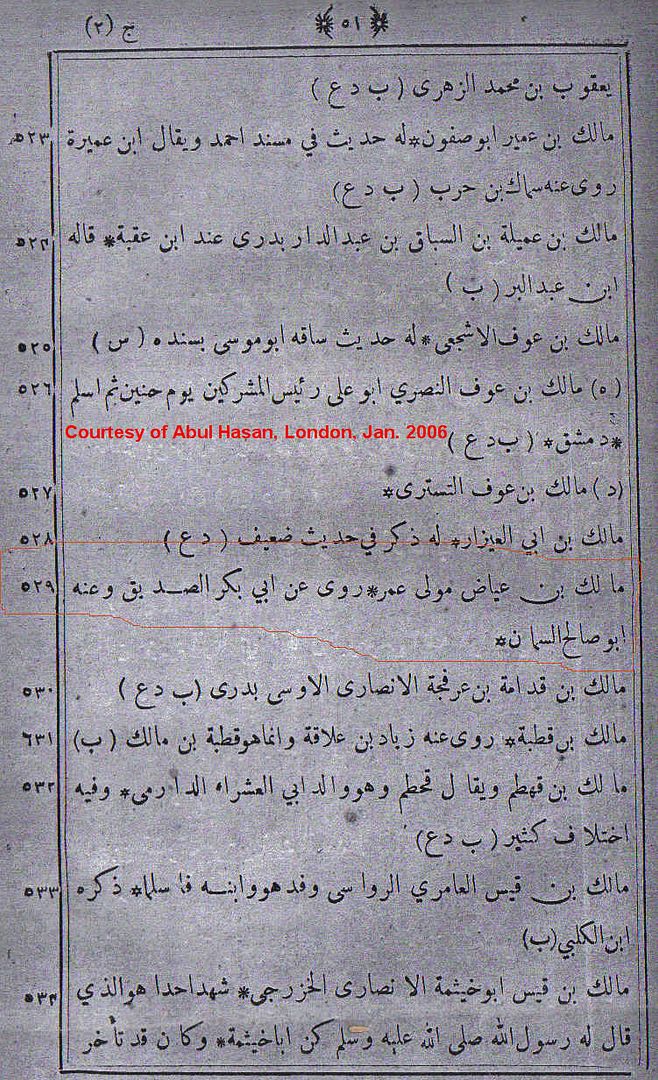 ج (٢) ٥١
يعقوب بن محمد الزهرى ( ب د ع )
مالك بن عمير ابو صفون* له حديث في مسند احمد ويقال ابن عميرة ٥٢٣
روى عنه سماك بن حرب ( ب د ع )
مالك بن عميلة بن السباق بن عبد الدار بدرى عند ابن عقبة* قاله ٥٢٤
ابن عبد البر ( ب )
مالك بن عوف الاشجعى* له حديث ساقه ابو موسى بسنده ( س ) ٥٢٥
( ه ) مالك بن عوف النصري ابو على رئيس المشركين يوم حنين ثم اسلم ٥٢٦
Courtesy of Abul Hasan, London, Jan. 2006
* دمشق* ( ب د ع )
( د ) مالك بن عوف التسترى* ٥٢٧
مالك بن ابي العيزار* له ذكر في حديث ضعيف ( د ع ) ٥٢٨
مالك بن عياض مولى عمر* روى عن ابي بكر الصديق وعنه ٥٢٩
ابو صالح السمان*
مالك بن قدامة بن عرفجة الانصارى الاوسى بدرى ( ب د ع ) ٥٣٠
مالك بن قطبة* روى عنه زياد بن علاقة وانما هو قطبة بن مالك ( ب ) ٦٣١
مالك بن قهطم ويقال قحطم وهو والد ابي العشراء الدارمى* وفيه ٥٣٢
اختلاف كثير ( ب د ع )
مالك بن قيس العامري الرواسى وفد هو وابنه فاسلما* ذكره ٥٣٣
ابن الكلبي ( ب )
مالك بن قيس ابو خيثمة الانصارى الخزرجي* شهد احدا هو الذي ٥٣٤
قال له رسول الله صلى الله عليه وسلم كن ابا خيثمة* وكان قد تأخر